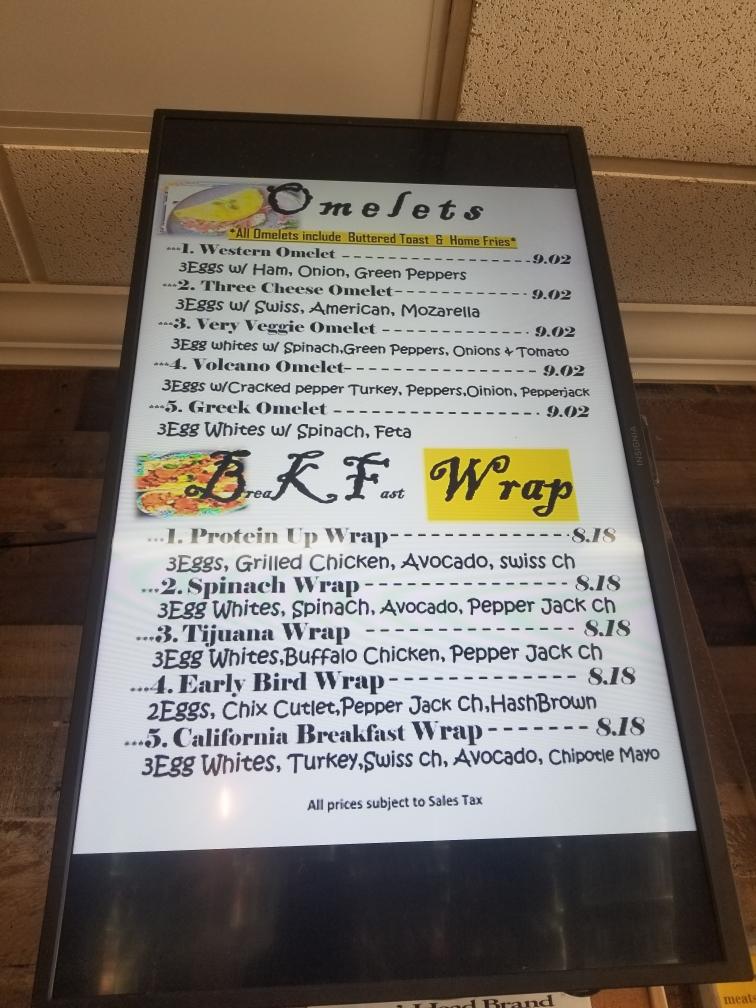 Omelets
*All Omelets include Buttered Toast & Home Fries*
...1. Western Omelet --------------------9.02
3Eggs w/ Ham, Onion, Green Peppers
...2. Three Cheese Omelet-------------- 9.02
3Eggs w/ Swiss, American, Mozarella
...3. Very Veggie Omelet --------------- 9.02
3Egg whites w/ Spinach,Green Peppers, Onions & Tomato
...4. Volcano Omelet------------------- 9.02
3Eggs w/Cracked pepper Turkey, Peppers,Oinion, Pepperjack
...5. Greek Omelet -------------------- 9.02
3Egg Whites w/ Spinach, Feta
BreaKFast Wrap
...1. Protein Up Wrap-----------------8.18
3Eggs, Grilled Chicken, Avocado, swiss ch
...2. Spinach Wrap ------------------ 8.18
3Egg Whites, Spinach, Avocado, Pepper Jack ch
...3. Tijuana Wrap ----------------- 8.18
3Egg Whites,Buffalo Chicken, Pepper Jack ch
...4. Early Bird Wrap-------------- 8.18
2Eggs, Chix Cutlet,Pepper Jack Ch,HashBrown
...5. California Breakfast Wrap------- 8.18
3Egg Whites, Turkey,Swiss ch, Avocado, Chipotle Mayo
All prices subject to Sales Tax
INSIGNIA
Head Brand
meats